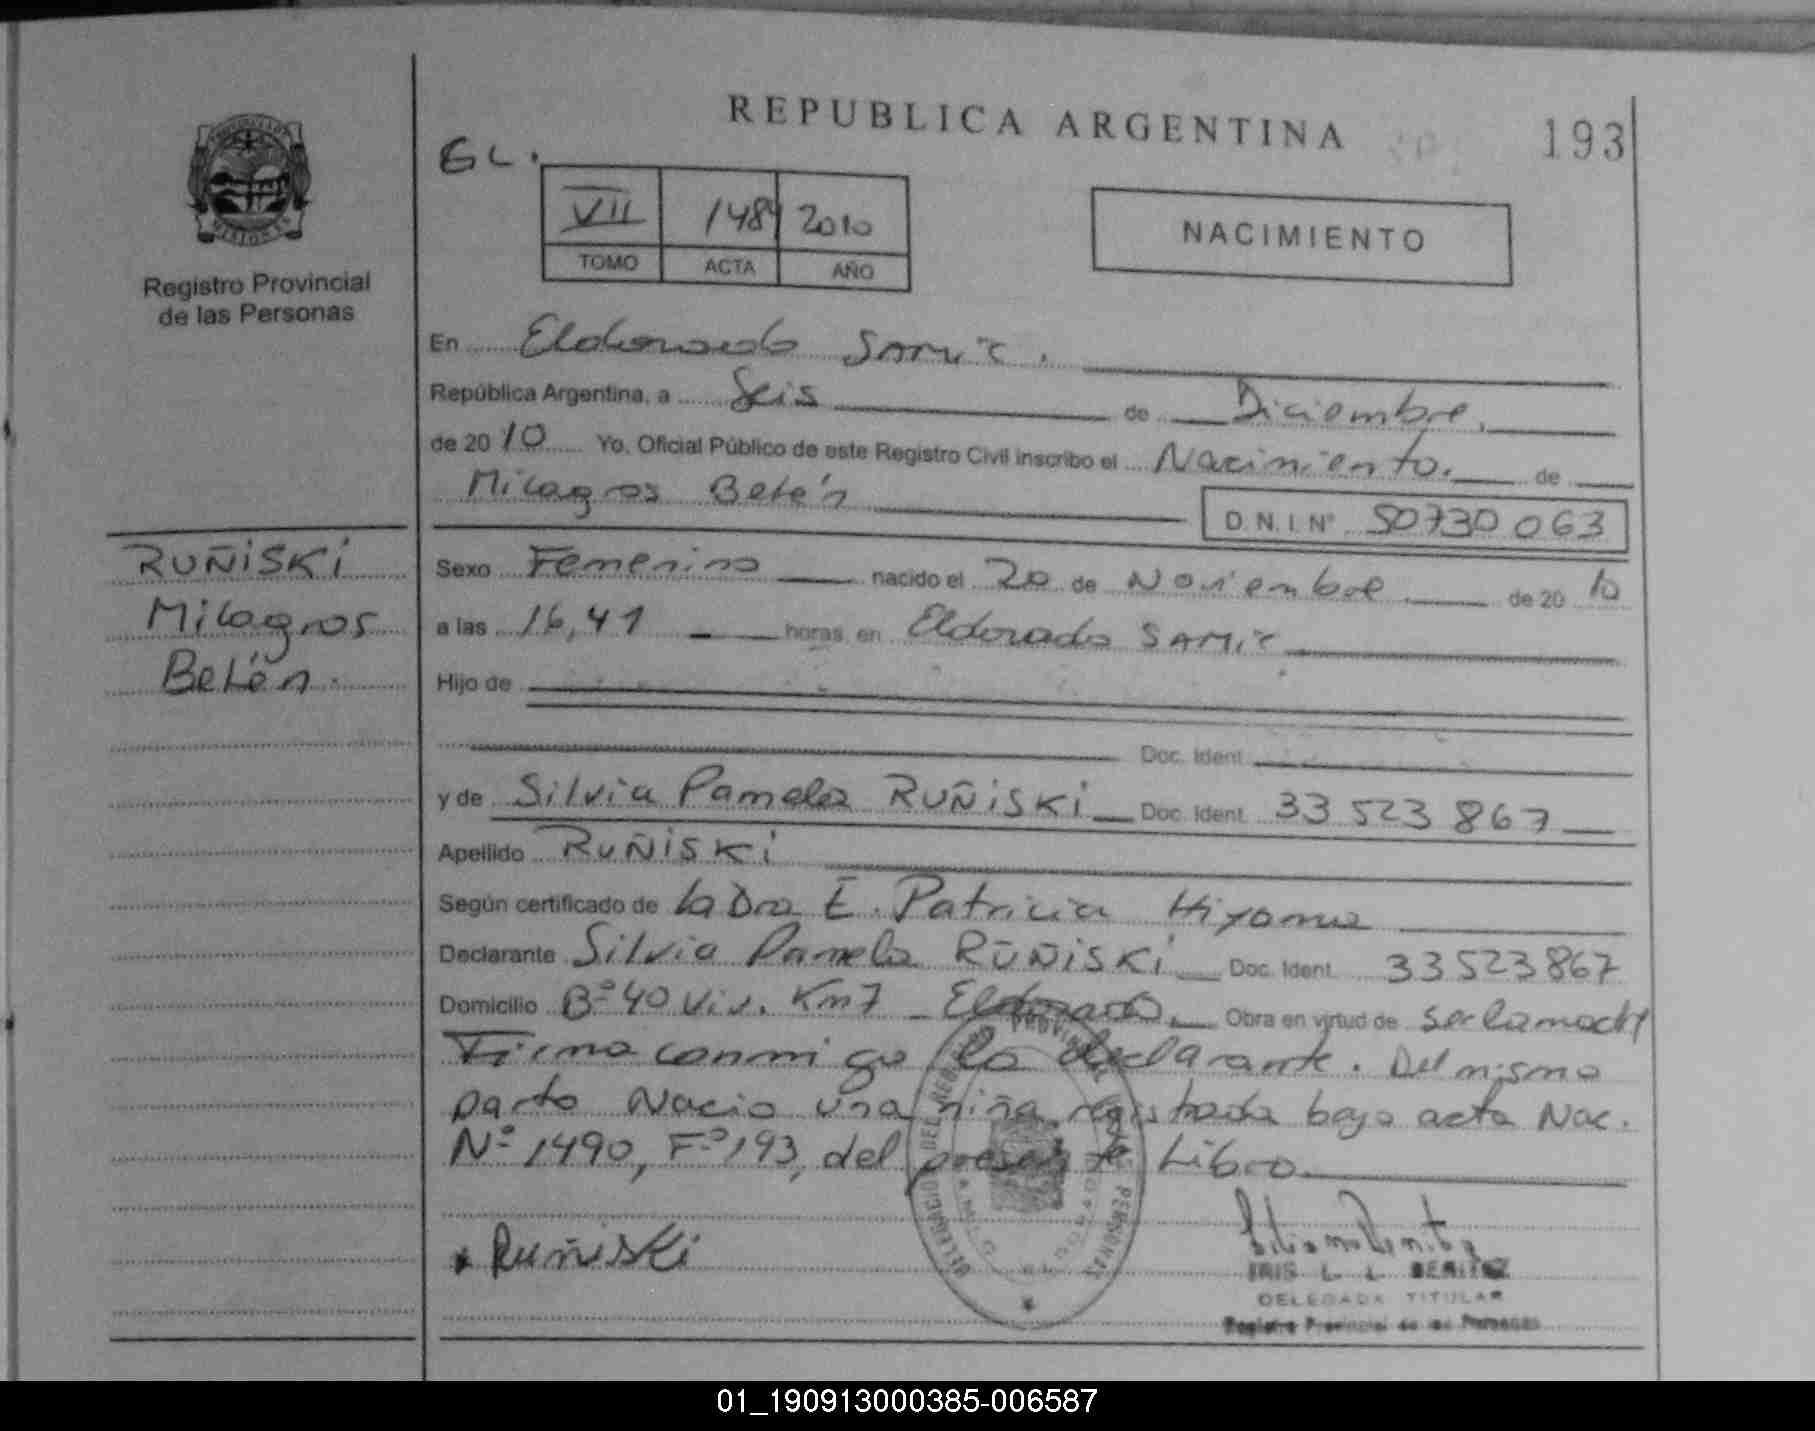 REPUBLICA ARGENTINA
193
GL.
VII 1489 2010
TOMO ACTA AÑO
NACIMIENTO
MISIONES
Registro Provincial
de las Personas
En Eldorado SAMIC.
República Argentina, a Seis de Diciembre.
de 2010 Yo, Oficial Público de este Registro Civil inscribo el Nacimiento. de
Milagros Belén
D.N.I. Nº 50730063
RUÑiSKi
Milagros
Belén.
Sexo Femenino nacido el 20 de Noviembre de 20 10
a las 16,41 horas, en Eldorado SAMIC
Hijo de
Doc. Ident.
y de Silvia Pamela RUÑiSKi Doc. Ident. 33 523 867
Apellido RUÑiSKi
Según certificado de la Dra E. Patricia Hiyoma
Declarante Silvia Pamela RUÑiSKi Doc. Ident. 33523867
Domicilio Bº 40 Viv. Km7 Eldorado. Obra en virtud de ser la madre
Firma conmigo la declarante. Del mismo
parto Nacio una niña registrada bajo acta Nac.
Nº 1490, Fº 193, del presente Libro.
Ruñiski
IRIS L. L. BENITEZ
DELEGADA TITULAR
Registro Provincial de las Personas
01_190913000385-006587